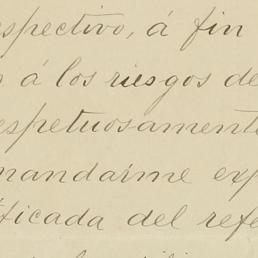 espectivo, á fin
á los riesgos de
espetuosamente
mandarme exp
ificada del refe